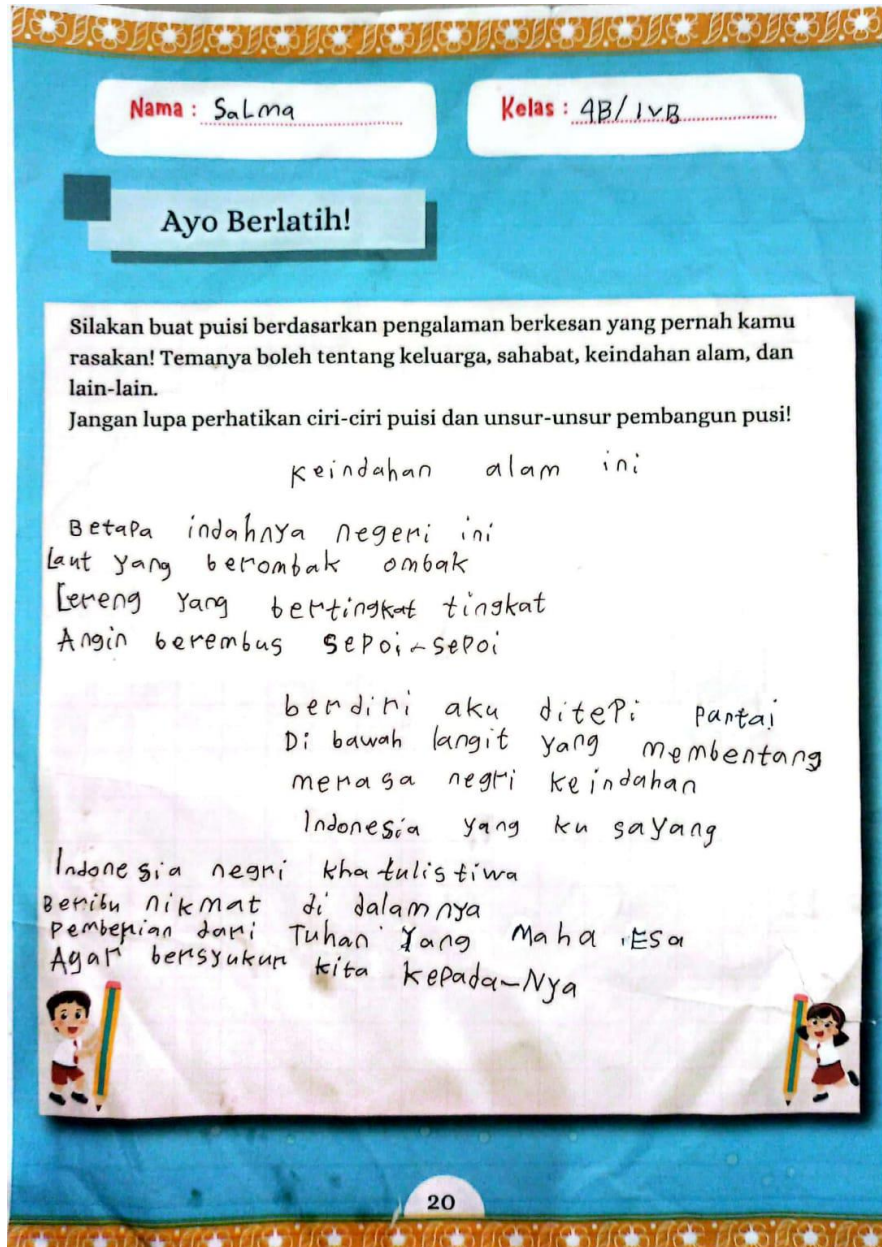 Nama : Salma
Kelas : 4B/IVB
Ayo Berlatih!
Silakan buat puisi berdasarkan pengalaman berkesan yang pernah kamu
rasakan! Temanya boleh tentang keluarga, sahabat, keindahan alam, dan
lain-lain.
Jangan lupa perhatikan ciri-ciri puisi dan unsur-unsur pembangun pusi!
Keindahan alam ini
Betapa indahnya negeri ini
Laut yang berombak ombak
Lereng yang bertingkat tingkat
Angin berembus sepoi-sepoi
berdiri aku ditepi pantai
Di bawah langit yang membentang
merasa negri keindahan
Indonesia yang ku sayang
Indonesia negri khatulistiwa
Beribu nikmat di dalamnya
Pemberian dari Tuhan Yang Maha Esa
Agar bersyukur kita kepada-Nya
20